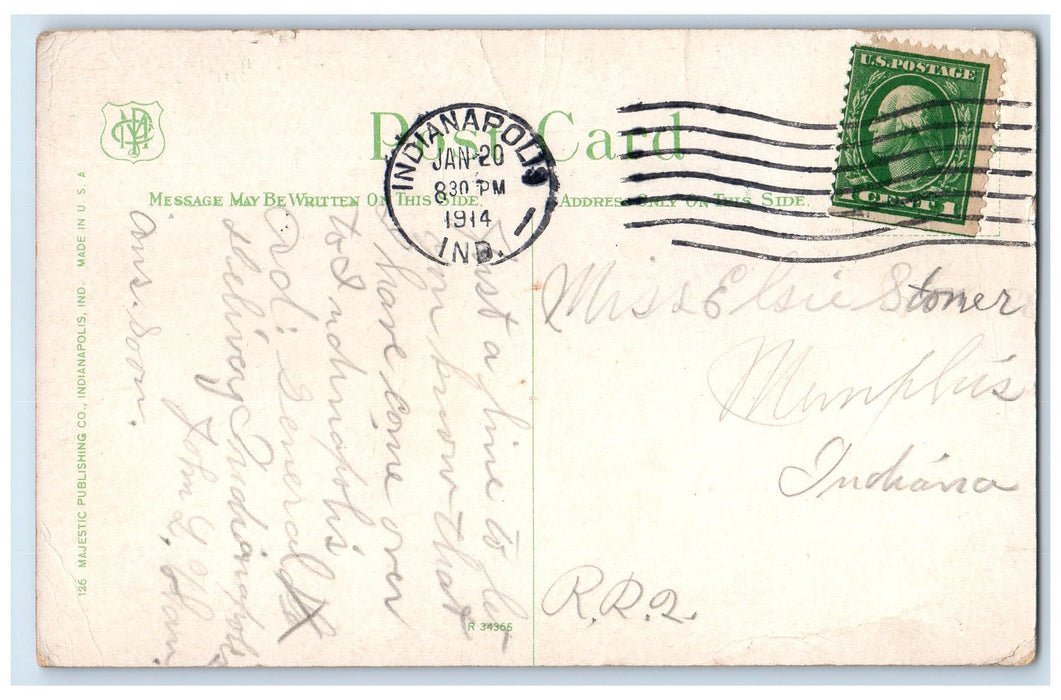 Post Card
U.S. POSTAGE
1 CENTS 1
INDIANAPOLIS
JAN 20
8 30 PM
1914
IND.
1
MESSAGE MAY BE WRITTEN ON THIS SIDE.
ADDRESS ONLY ON THIS SIDE.
Just a line to let
you know that
I have come over
to Indinapolis
Ad: General
delivery Indianapolis
John L.
Ans. Soon.
Miss Elsie Stoner
Memphis
Indiana
R.R.2
126 MAJESTIC PUBLISHING CO., INDIANAPOLIS, IND MADE IN U. S. A
R 34365